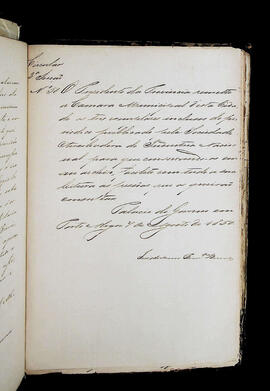 Circular
2ª Secção
Nº 30 O Presidente da Provincia remette
a Camara Municipal desta Cida
de os tres exemplares inclusos do pe
riodico publicado pela Sociedade
Auxiliadora da Industria Nacio
nal, para que conservando-os em
seu archivo, facilite com toda a
leitura ás pessoas que a quiserem
consultar.
Palacio do Governo em
Porto Alegre de Agosto de 1850